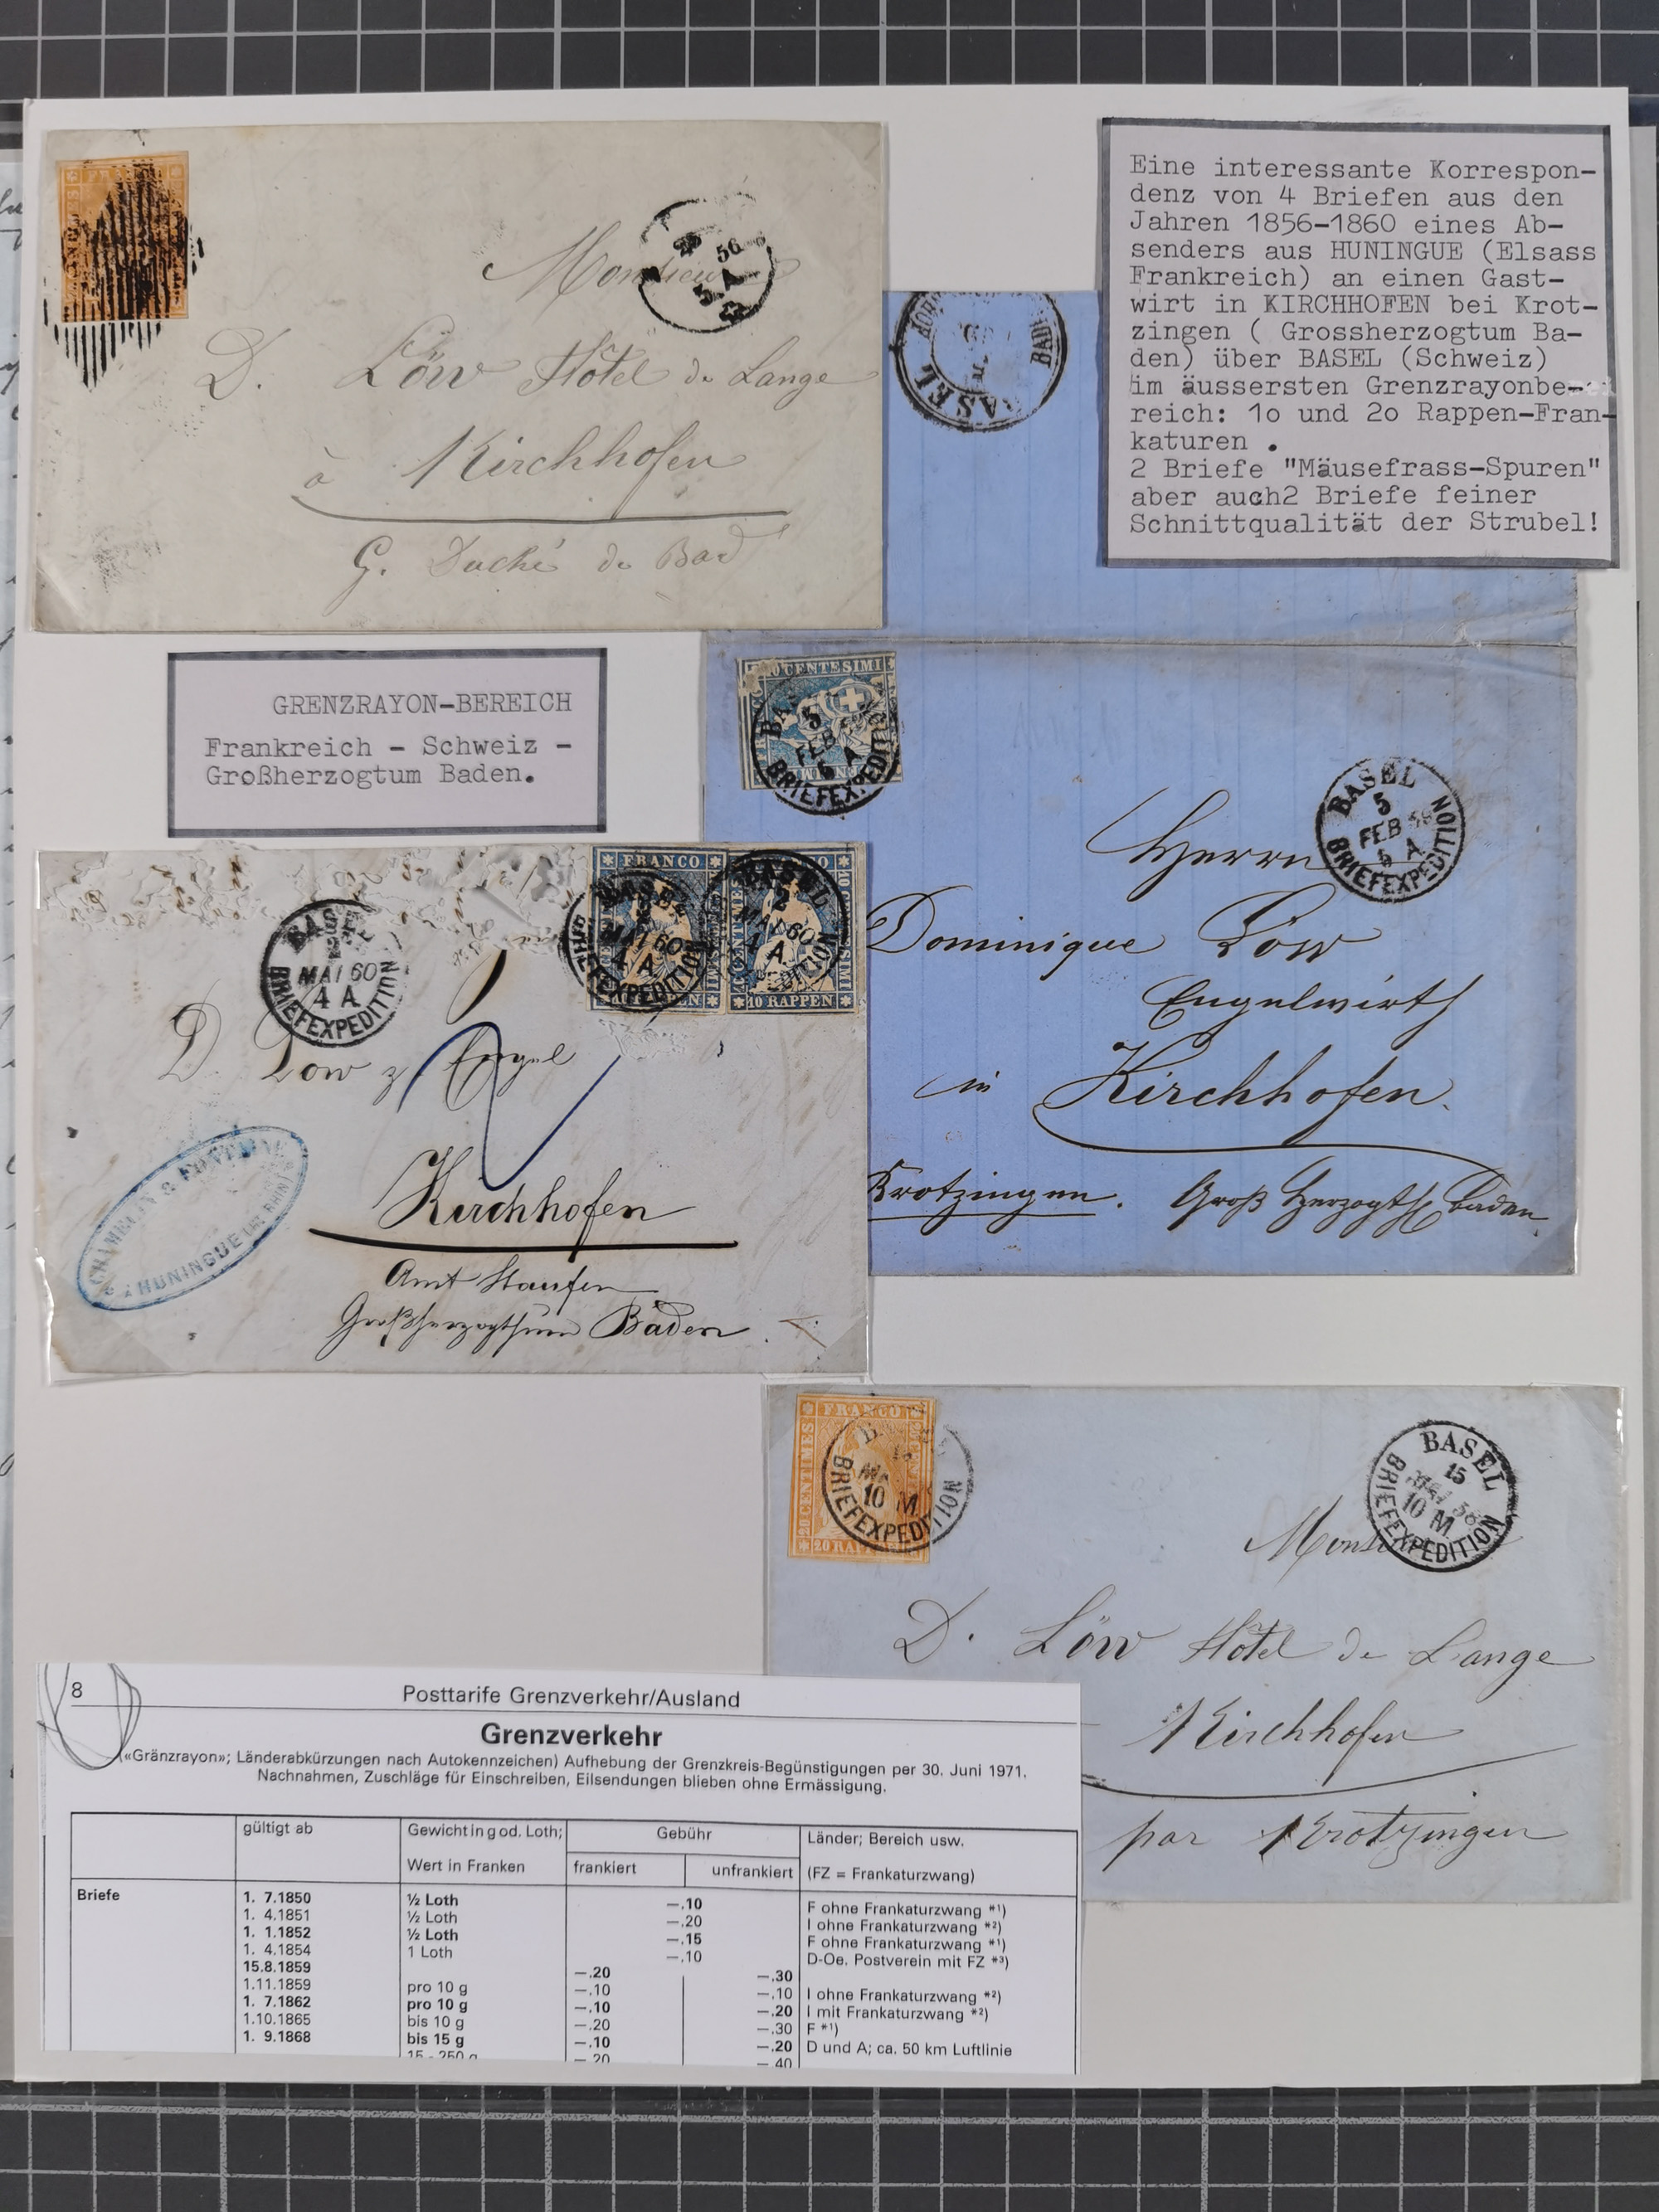 FRANCO
56
Monsieur
D. Löw Hôtel de Lange
à Kirchhofen
G. Duché de Bad
Eine interessante Korrespon-
denz von 4 Briefen aus den
Jahren 1856-1860 eines Ab-
senders aus HUNINGUE (Elsass
Frankreich) an einen Gast-
wirt in KIRCHHOFEN bei Krot-
zingen ( Grossherzogtum Ba-
den) über BASEL (Schweiz)
im äussersten Grenzrayonbe-
reich: 1o und 2o Rappen-Fran-
katuren .
2 Briefe "Mäusefrass-Spuren"
aber auch2 Briefe feiner
Schnittqualität der Strubel!
BASEL
BAD
GRENZRAYON-BEREICH
Frankreich - Schweiz -
Großherzogtum Baden.
CENTESIMI
BAS
5
FEB
5 A
BRIEFEXPEDITION
BASEL
5
FEB
5 A
BRIEFEXPEDITION
Herrn
Dominique Löw
Engelwirth
in Kirchhofen.
Krotzingen. Groß Herzogth Baden
FRANCO
BASEL
2
MAI 60
4 A
BRIEFEXPEDITION
BASEL
2
MAI 60
4 A
EXPEDITION
10 RAPPEN
BASEL
MAI 60
4 A
BRIEFEXPEDITION
D Löw z Engel
Kirchhofen
Amt Staufen
Großherzogthum Baden
HUNINGUE
FRANCO
20 CENTIMES
10 M
BRIEFEXPEDITION
20 RAPPEN
BASEL
15
MAI 58
10 M
BRIEFEXPEDITION
Monsieur
D. Löw Hôtel de Lange
Kirchhofen
par Krotzingen
8 Posttarife Grenzverkehr/Ausland
Grenzverkehr
(«Gränzrayon»; Länderabkürzungen nach Autokennzeichen) Aufhebung der Grenzkreis-Begünstigungen per 30. Juni 1971.
Nachnahmen, Zuschläge für Einschreiben, Eilsendungen blieben ohne Ermässigung.
gültigt ab Gewicht in g od. Loth; Gebühr Länder; Bereich usw.
Wert in Franken frankiert unfrankiert (FZ = Frankaturzwang)
Briefe 1. 7.1850 ½ Loth —.10 F ohne Frankaturzwang *¹)
1. 4.1851 ½ Loth —.20 I ohne Frankaturzwang *²)
1. 1.1852 ½ Loth —.15 F ohne Frankaturzwang *¹)
1. 4.1854 1 Loth —.10 D-Oe. Postverein mit FZ *³)
15.8.1859 —.20 —.30
1.11.1859 pro 10 g —.10 —.10 I ohne Frankaturzwang *²)
1. 7.1862 pro 10 g —.10 —.20 I mit Frankaturzwang *²)
1.10.1865 bis 10 g —.20 —.30 F *¹)
1. 9.1868 bis 15 g —.10 —.20 D und A; ca. 50 km Luftlinie
15 - 250 g —.20 —.40